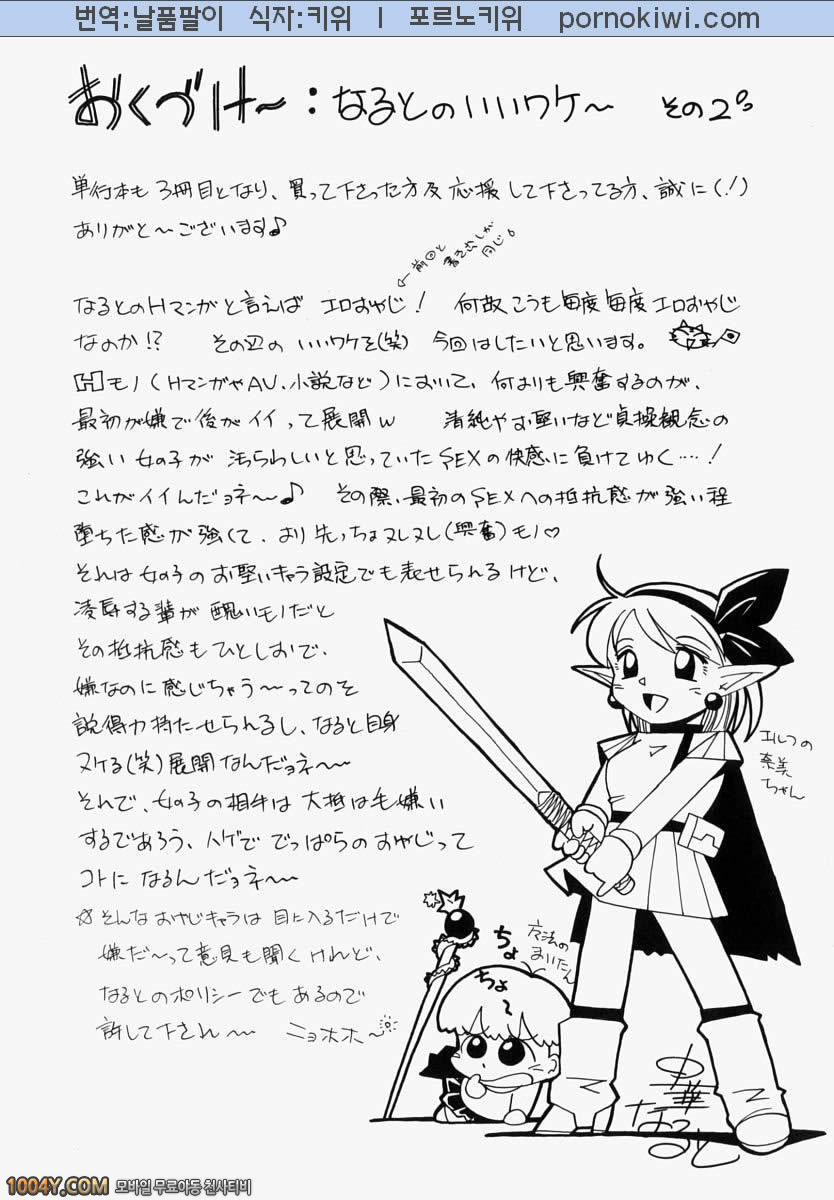 번역:날품팔이 식자:키위 | 포르노키위 pornokiwi.com
おくづけ〜:なるとのいいワケ〜 その2。
単行本も3冊目となり、買って下さった方及応援して下さってる方、誠に(!)
ありがと〜ございます♪
←前回と
書き出しが
同じ。
なるとのHマンガと言えば エロおやじ! 何故こうも毎度毎度エロおやじ
なのか!? その辺のいいワケを(笑) 今回はしたいと思います。
Hモノ(HマンガやAV、小説など)において、何よりも興奮するのが、
最初が嫌で後がイイって展開w 清純やお堅いなど貞操観念の
強い女の子が汚らわしいと思っていたSEXの快感に負けてゆく…!
これがイイんだョネ〜♪ その際、最初のSEXへの抵抗感が強い程
堕ちた感が強くて、より先っちょヌレヌレ(興奮)モノ♡
それは女の子のお堅いキャラ設定でも表せられるけど、
凌辱する輩が醜いモノだと
その抵抗感もひとしおで、
嫌なのに感じちゃう〜ってのを
説得力持たせられるし、なると自身
ヌケる(笑)展開なんだョネ〜
それで、女の子の相手は大抵は毛嫌い
するであろう、ハゲででっぱらのおやじって
コトになるんだョネ〜
☆そんなおやじキャラは目に入るだけで
嫌だ〜って意見も聞くけれど、
なるとのポリシーでもあるので
許して下され〜 ニョホホ〜
エルフの
奈美
ちゃん
ちょ
ちょ
〜
まいたん
1004Y.COM 모바일 무료야동 천사티비